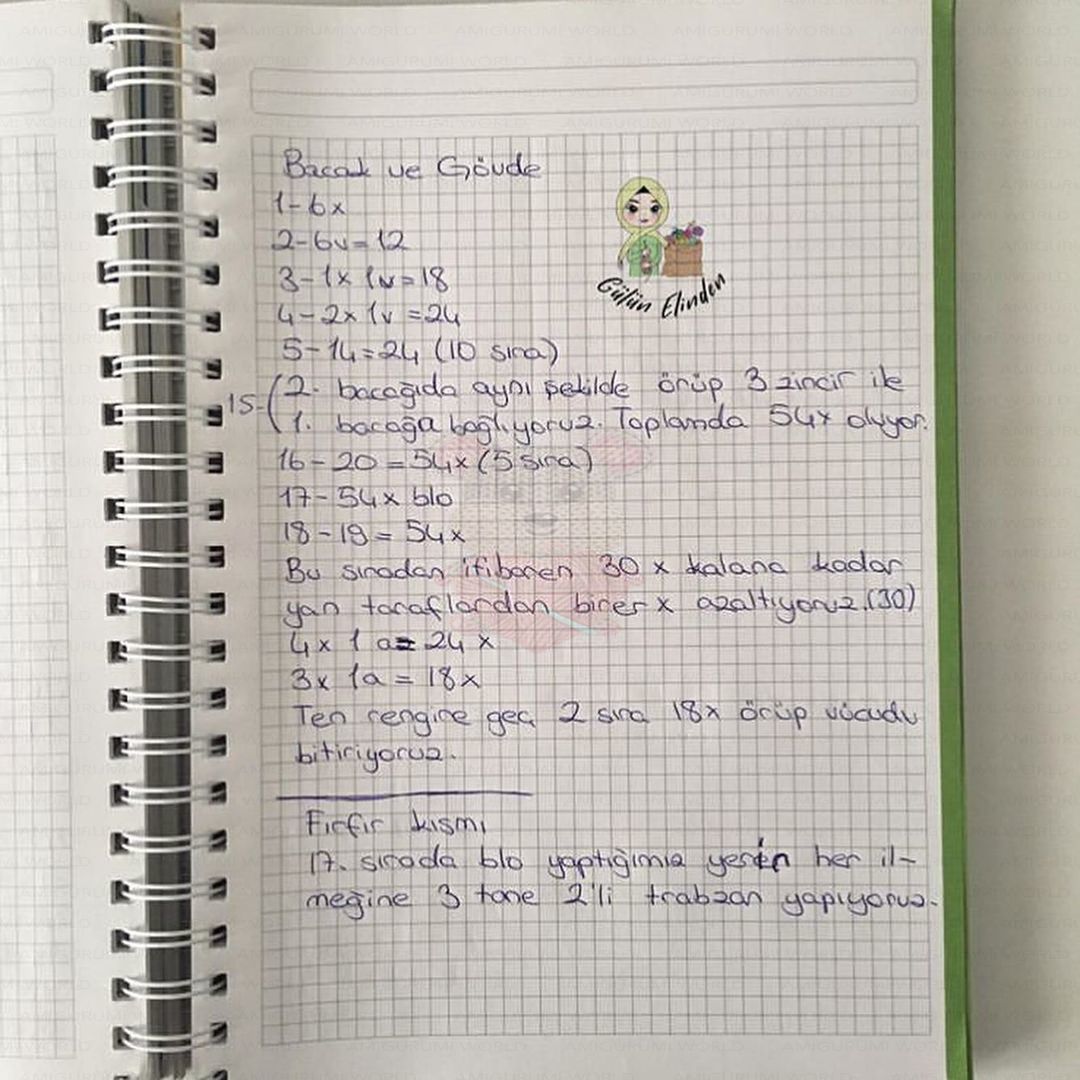 Bacak ve Gövde
1-6x
2-6v=12
3-1x 1v=18
4-2x 1v=24
5-14=24 (10 sıra)
15-(2. bacağıda aynı şekilde örüp 3 zincir ile
1. bacağa bağlıyoruz. Toplamda 54x oluyor.
16-20=54x (5 sıra)
17-54x blo
18-19=54x
Bu sıradan itibaren 30 x kalana kadar
yan taraflardan birer x azaltıyoruz.(30)
4x 1a=24x
3x 1a=18x
Ten rengine geç 2 sıra 18x örüp vücudu
bitiriyoruz.
Fırfır kısmı
17. sırada blo yaptığımız yerin her il-
meğine 3 tane 2'li trabzan yapıyoruz.
Gülün Elinden
AMIGURUMI WORLD